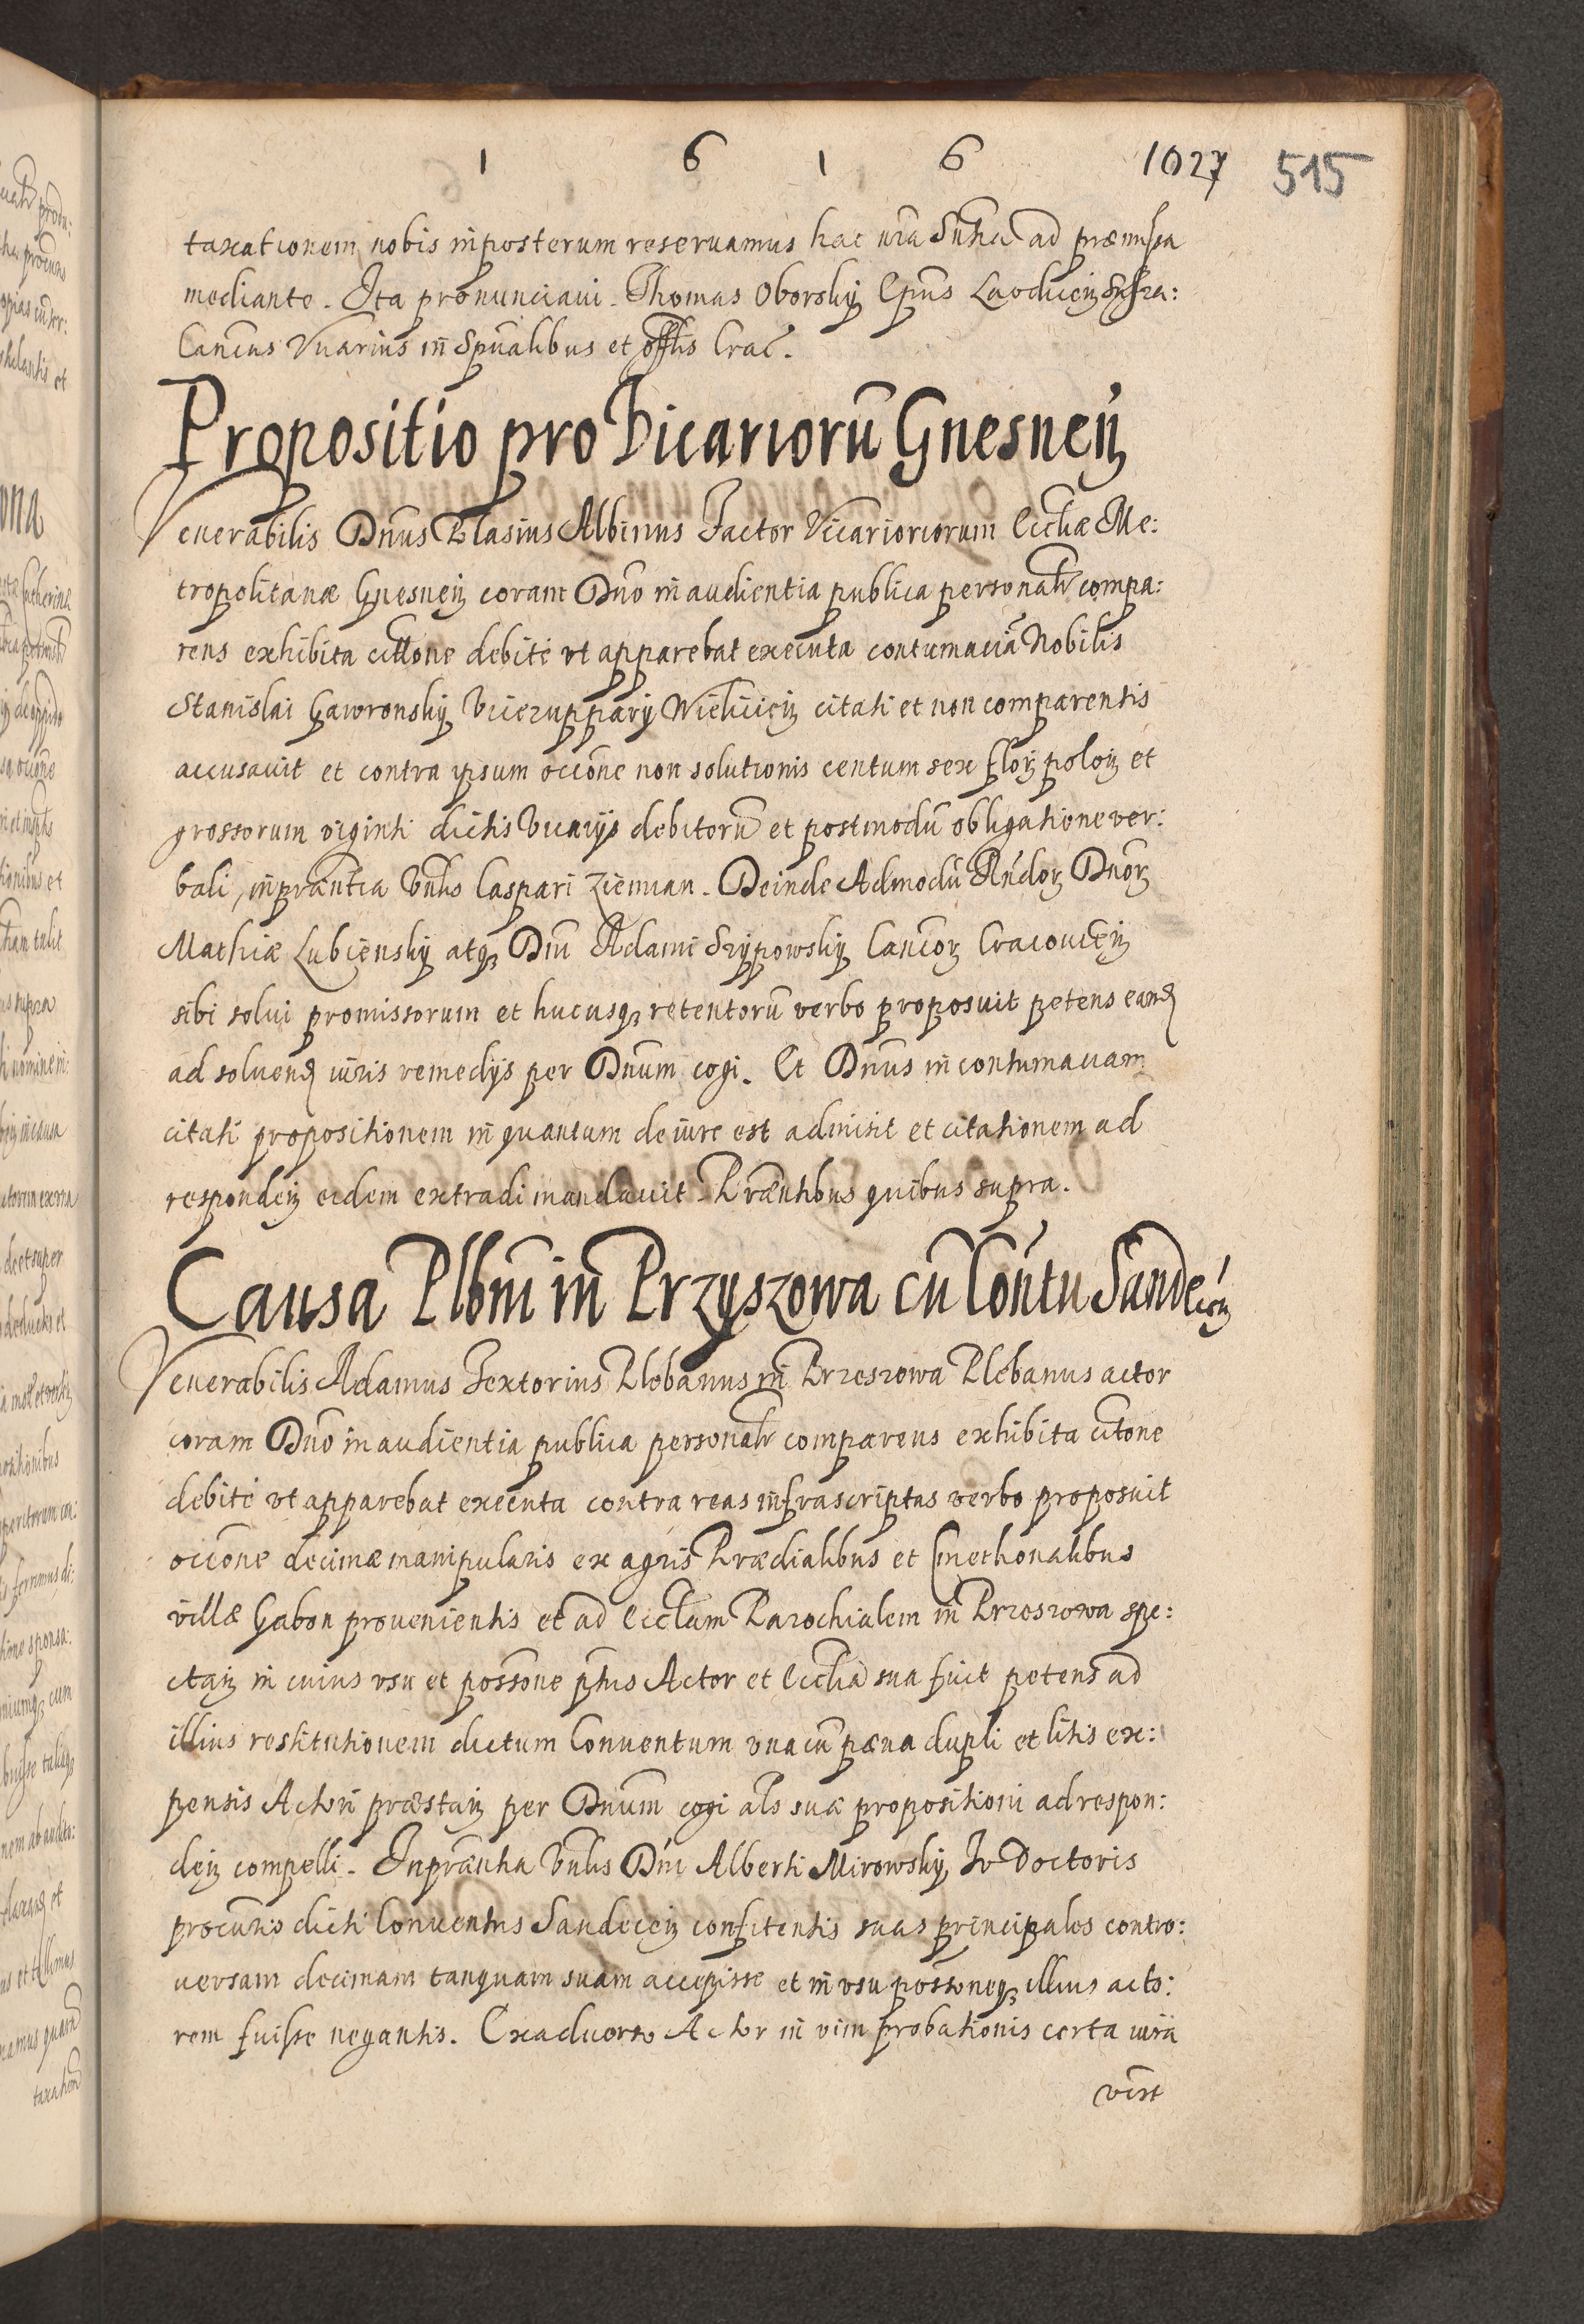 1 6 1 6 1027 515
taxationem nobis inposterum reseruamus hac nra Sntia ad præmissa
mediante. Ita pronunciaui. Thomas Oborskij Epus Laodiceñ Suffra:
Cancus Vicarius in Spualibus et offlis Crac.
Propositio pro Vicariorũ Gnesneñ
Venerabilis Dnus Blasius Albinus Factor Vicarioriorum Eccliæ Me:
tropolitanæ Gnesneñ coram Dno in audientia publica personalr compa:
rens exhibita cittone debite vt apparebat executa contumaciã Nobilis
Stanislai Gawronskij Vicezupparij Wielicieñ citati et non comparentis
accusauit et contra ipsum occõne non solutionis centum sex flor poloñ et
grossorum viginti dictis Vicarijs debitorũ et postmodũ obligatione ver:
bali, in præntia Vnlis Caspari Ziemian. Deinde Admodũ Rndor Dnor
Mathiæ Lubienskij atq Dni Adami Szypowskij Cancor Cracouieñ
sibi solui promissorum et hucusq retentorũ verbo proposuit petens eand
ad soluend iuris remedijs per Dnum cogi. Et Dnus in contumaciam
citati propositionem in quantum de iure est admisit et citationem ad
respondeñ eidem extradi mandauit. Præntibus quibus supra.
Causa Plbni in Przyszowa cũ Contu Sandeceñ
Venerabilis Adamus Textorius Plebanus in Przeszowa Plebanus actor
coram Dno in audientia publica personalr comparens exhibita citone
debite vt apparebat executa contra reas infrascriptas verbo proposuit
occõne decimæ manipularis ex agris Prædialibus et Cmethonalibus
villæ Gabon prouenientis et ad Eccliam Parochialem in Przeszowa spe:
ctañ in cuius vsu et possõne ptus Actor et Ecclia sua fuit petens ad
illius restitutionem dictum Conuentum vnacũ pæna dupli et litis ex:
pensis Actori præstañ per Dnum cogi als suæ propositioni ad respon:
deñ compelli. In præntia Vnlis Dni Alberti Mirowskij Iv Doctoris
procuris dicti Conuentus Sandeceñ confitentis suas principales contro:
uersam decimam tanquam suam accepisse et in vsu possoneq illius acto:
rem fuisse negantis. Exaduerso Actor in vim probationis certa iura